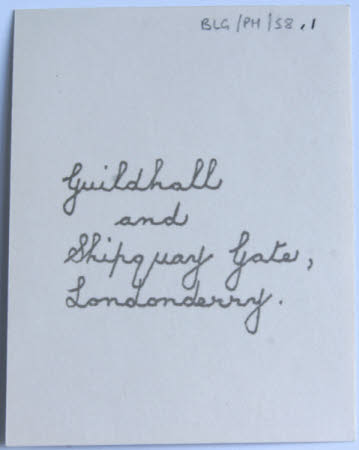 BLG/PH/58.1
Guildhall
and
Shipquay Gate,
Londonderry.